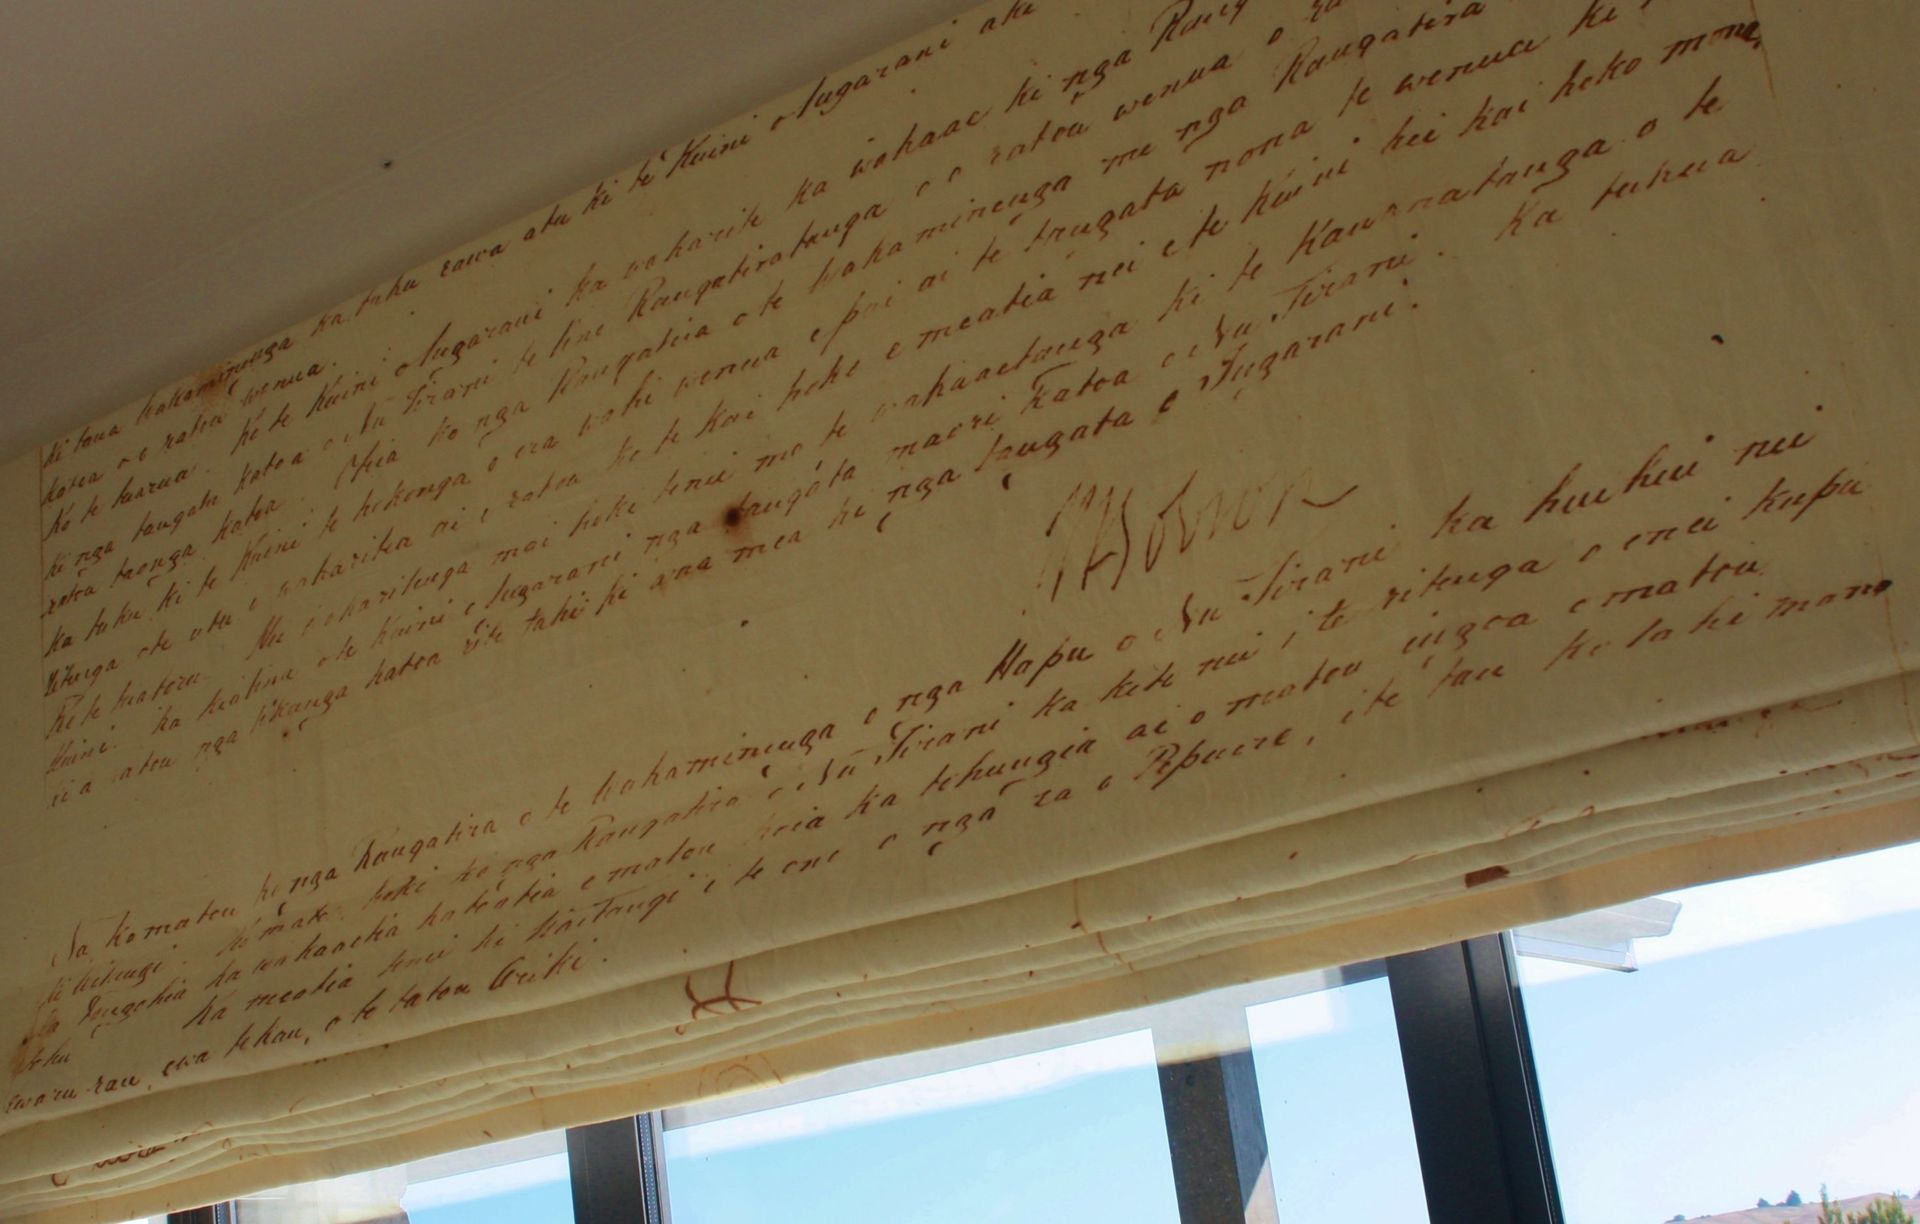 ki taua wakaminenga ka tuku rawa atu ki te Kuini o Ingarani ake
katoa o o ratou wenua.
Ko te tuarua. Ko te Kuini o Ingarani ka wakarite ka wakaae ki nga Rang
ki nga tangata katoa o Nu Tirani te tino Rangatiratanga o o ratou wenua o ra
ratou taonga katoa. Otiia ko nga Rangatira o te wakaminenga me nga Rangatira
ka tuku ki te Kuini te hokonga o era wahi wenua e pai ai te tangata nona te wenua ki
ritenga o te utu e wakaritea ai e ratou ko te kai hoko e meatia nei e te Kuini hei kai hoko mona.
Ko te tuatoru. Hei wakaritenga mai hoki tenei mo te wakaaetanga ki te Kawanatanga o te
Kuini. Ka tiakina e te Kuini o Ingarani nga tangata maori katoa o Nu Tirani. Ka tukua
ki a ratou nga tikanga katoa rite tahi ki ana mea ki nga tangata o Ingarani.
W Hobson
Na ko matou ko nga Rangatira o te Wakaminenga o nga Hapu o Nu Tirani ka huihui nei
ki Waitangi. Ko matou hoki ko nga Rangatira o Nu Tirani ka kite nei i te ritenga o enei kupu
ka tangohia ka wakaaetia katoatia e matou koia ka tohungia ai o matou ingoa o matou
tohu Ka meatia tenei ki Waitangi i te ono o nga ra o Pepuere, i te tau kotahi mano
e waru rau, e wa tekau, o to tatou Ariki.